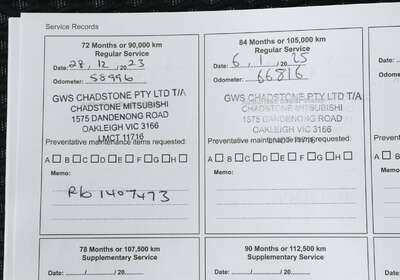 Service Records
72 Months or 90,000 km
Regular Service
Date: 28, 12, 2023
Odometer: 58996
GWS CHADSTONE PTY LTD T/A
CHADSTONE MITSUBISHI
1575 DANDENONG ROAD
OAKLEIGH VIC 3166
LMCT 11716
Preventative maintenance items requested:
A B C D E F G H
Memo:
R/o 1407473
84 Months or 105,000 km
Regular Service
Date: 6, 1, 2025
Odometer: 66816
GWS CHADSTONE PTY LTD T/A
CHADSTONE MITSUBISHI
1575 DANDENONG ROAD
OAKLEIGH VIC 3166
LMCT 11716
Preventative maintenance items requested:
A B C D E F G H
Memo:
78 Months or 107,500 km
Supplementary Service
Date: / / 20
90 Months or 112,500 km
Supplementary Service
Date: / / 20